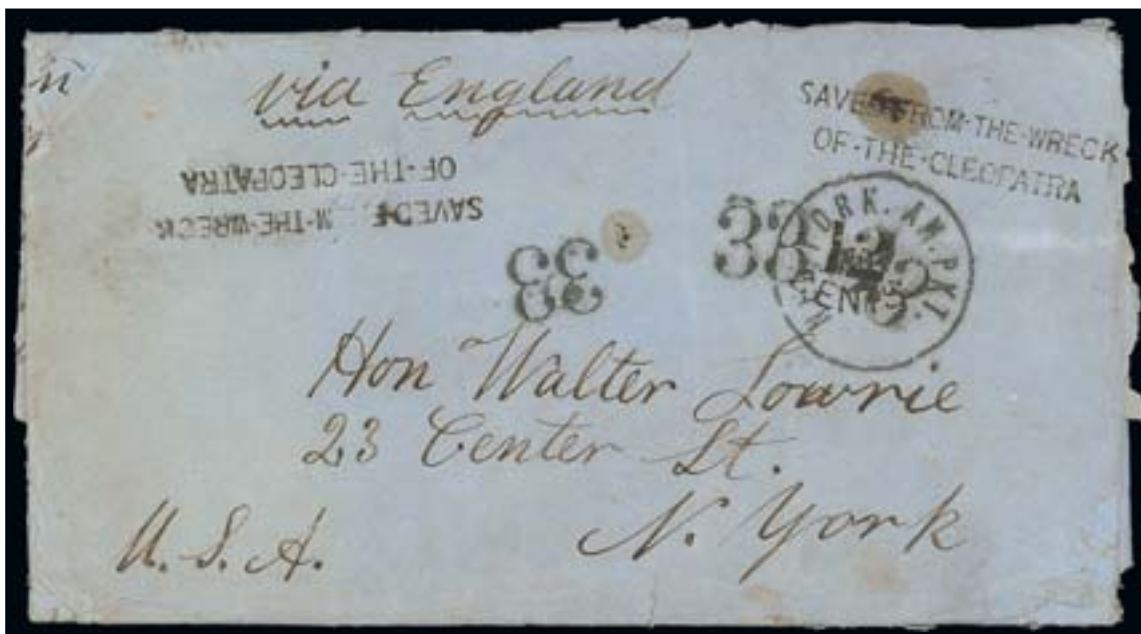 via England
SAVED-FROM-THE-WRECK
OF-THE-CLEOPATRA
SAVED M-THE-WRECK
OF-THE-CLEOPATRA
33
33
YORK. AM. PKT.
CENTS
Hon Walter Lowrie
23 Center St.
N. York
U.S.A.